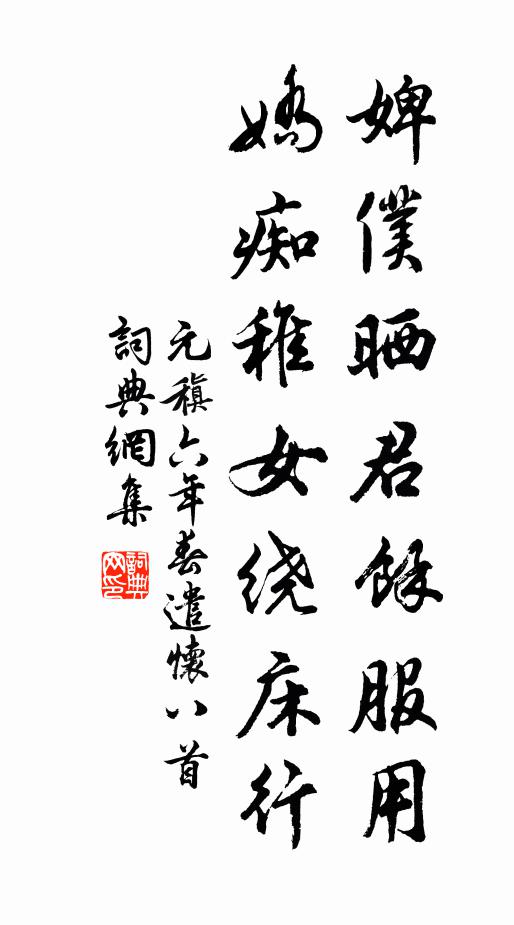 婢僕晒君餘服用
嬌痴稚女绕床行
元稹六年春遣懷八首
詞典網集
詞典网印